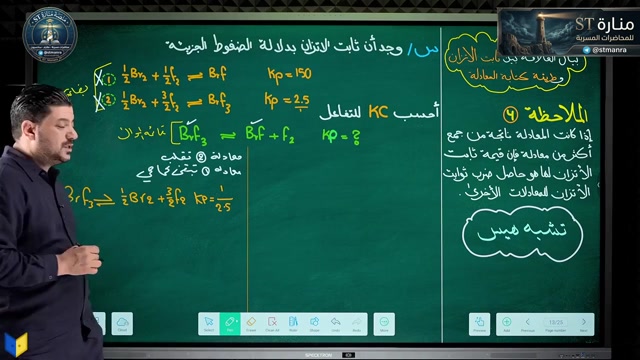 منارة ST
للمحاضرات المسربة
@stmanra
@stmanra
س/ وجد أن ثابت الاتزان بدلالة الضغوط الجزيئة
① ½Br₂ + ½f₂ ⇌ Brf Kp = 150
② ½Br₂ + 3/2 f₂ ⇌ Brf₃ Kp = 2.5
أحسب KC للتفاعل
Brf₃ ⇌ Brf + f₂ Kp = ?
معادلة ② نقلب
معادلة ① تبقى
Brf₃ ⇌ ½Br₂ + 3/2 f₂ Kp = 1/2.5
ثابت الاتزان
وطبيعة كتابة المعادلة
الملاحظة ٩
إذا كانت المعادلة ناتجة من جمع
أكثر من معادلة فإن قيمة ثابت
الاتزان لها هو حاصل ضرب ثوابت
الاتزان للمعادلات الأخرى.
تشبه هيس